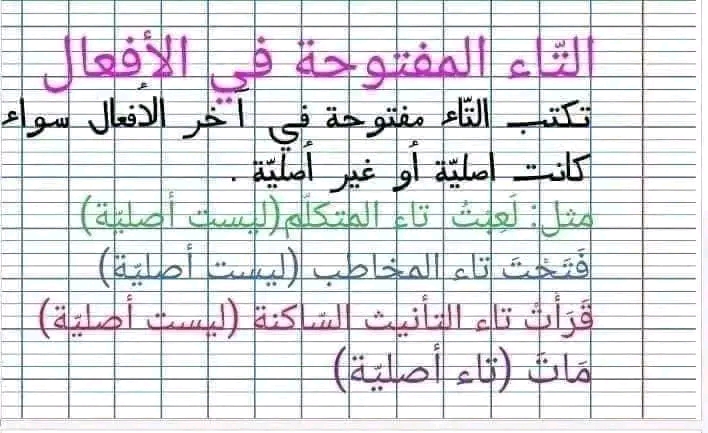 التّاء المفتوحة في الأفعال
تكتب التّاء مفتوحة في آخر الأفعال سواء
كانت اصليّة أو غير أصليّة .
مثل: لَعِبْتُ تاء المتكلّم(ليست أصليّة)
فَتَحْتَ تاء المخاطب (ليست أصليّة)
قَرَأَتْ تاء التأنيث السّاكنة (ليست أصليّة)
مَاتَ (تاء أصليّة)